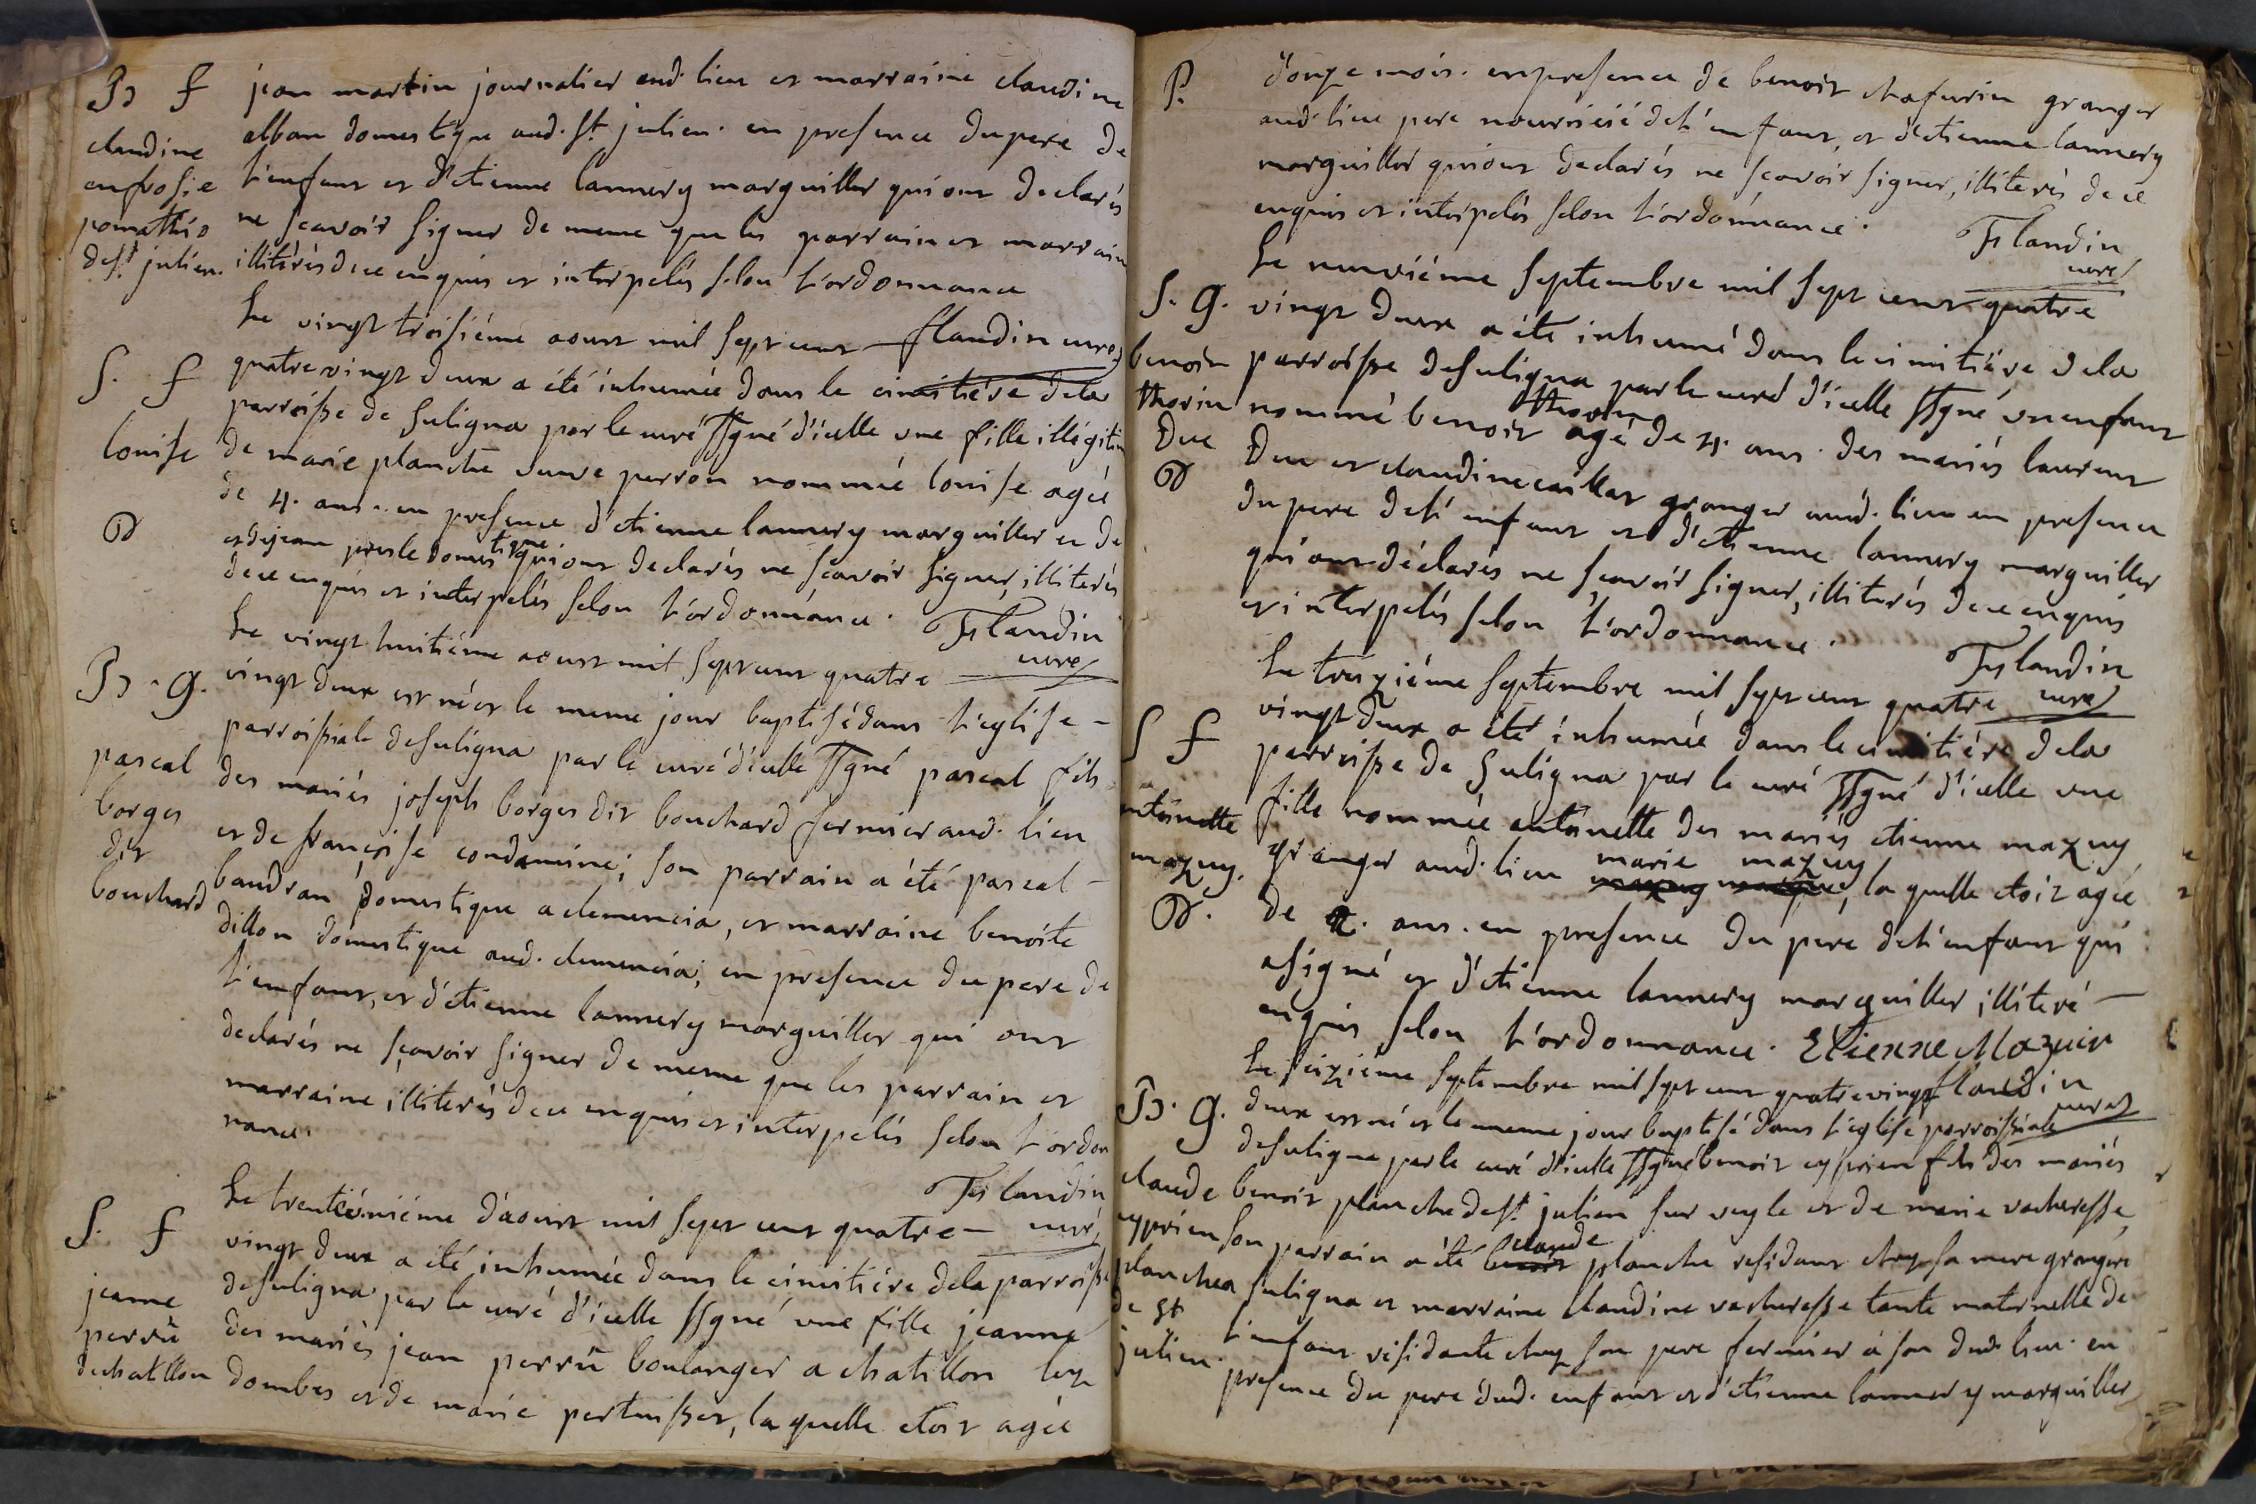 B f
claudine
eufrosie
pomathio
de st julien.
jean martin journalier aud. lieu et marraine claudine
alban domestique aud. st. julien. en presence du pere de
l'enfant et d'etienne lannery marguiller qui ont declarés
ne scavoir signer de meme que les parrain et marraine
illiterés de ce enquis et interpelés selon l'ordonnance
flandin curé
S. f
louise
D
Le vingt troisiéme aoust mil sept cent
quatre vingt deux a été inhumée dans le cimitiére dela
parroisse de suligna par le curé ssgné d'icelle une fille illégitim
de marie planche veuve perron nommée louise agée
de 4. ans. en presence d'etienne lannery marguiller et de
et de jean presle domestique qui ont declarés ne scavoir signer, illiterés
de ce enquis et interpelés selon l'ordonnance.
Flandin
curé
B. g.
pascal
borges
dit
bouchard
Le vingt huitiéme aoust mil sept cent quatre
vingt deux est né et le meme jour baptisé dans l'eglise
parroissiale de suligna par le curé d'icelle ssgné pascal fils
des mariés joseph borges dit bouchard fermier aud. lieu
et de françoise condamine; son parrain a été pascal
baudran domestique a clemencia, et marraine benoite
dillon domestique aud. clemencia; en presence du pere de
l'enfant, et d'etienne lannery marguiller qui ont
declarés ne scavoir signer de meme que les parrain et
marraine illiterés de ce enquis et interpelés selon l'ordon
nance.
Flandin
curé
S. f
jeanne
perrü
de chatillon
Le trentiémiéme d'aoust mil sept cent quatre
vingt deux a été inhumée dans le cimitiére dela parroisse
de suligna par le curé d'icelle ssgné une fille jeanne
des mariés jean perrü boulanger a chatillon lez
dombes et de marie pertuisset, la quelle etoit agée
P.
d'onze mois. en presence de benoit chafurin granger
aud. lieu pere nourricié de l'enfant, et d'etienne lannery
marguiller qui ont declarés ne scavoir signer, illiterés de ce
enquis et interpelés selon l'ordonnance.
Flandin
curé
S. g.
benoit
thorin
duc
D
Le neuviéme septembre mil sept cent quatre
vingt deux a été inhumé dans le cimitiére dela
parroisse de suligna par le curé d'icelle ssgné un enfant
nommé benoit thorin agé de 4. ans. des mariés laurent
duc et claudine caillat granger aud. lieu en presence
du pere de l'enfant et d'etienne lannery marguiller
qui ont déclarés ne scavoir signer, illiterés de ce enquis
et interpelés selon l'ordonnance.
Flandin
curé
S f
antoinette
mazuy.
D.
Le treiziéme septembre mil sept cent quatre
vingt deux a été inhumée dans le cimitiére dela
parroisse de suligna par le curé ssgné d'icelle une
fille nommée antoinette des mariés etienne mazuy
granger aud. lieu marie mazuy, la quelle etoit agée
de ans. en presence du pere de l'enfant qui
a signé et d'etienne lannery marguiller illiteré
enquis selon l'ordonnance. Etienne Mazuir
flandin
curé
B. g.
claude
cyprien
planche
de st
julien.
Le seiziéme septembre mil sept cent quatre vingt
deux est né et le meme jour baptisé dans l'eglise parroissiale
de suligna par le curé d'icelle ssgné benoit cyprien fils des mariés
benoit planche de st. julien sur veyle et de marie vacheresse,
son parrain a été claude planche residant chez sa mere grangere
a suligna et marraine claudine vacheresse tante maternelle de
l'enfant residante chez son pere fermier a son dud. lieu. en
presence du pere dud. enfant et d'etienne lannery marguiller